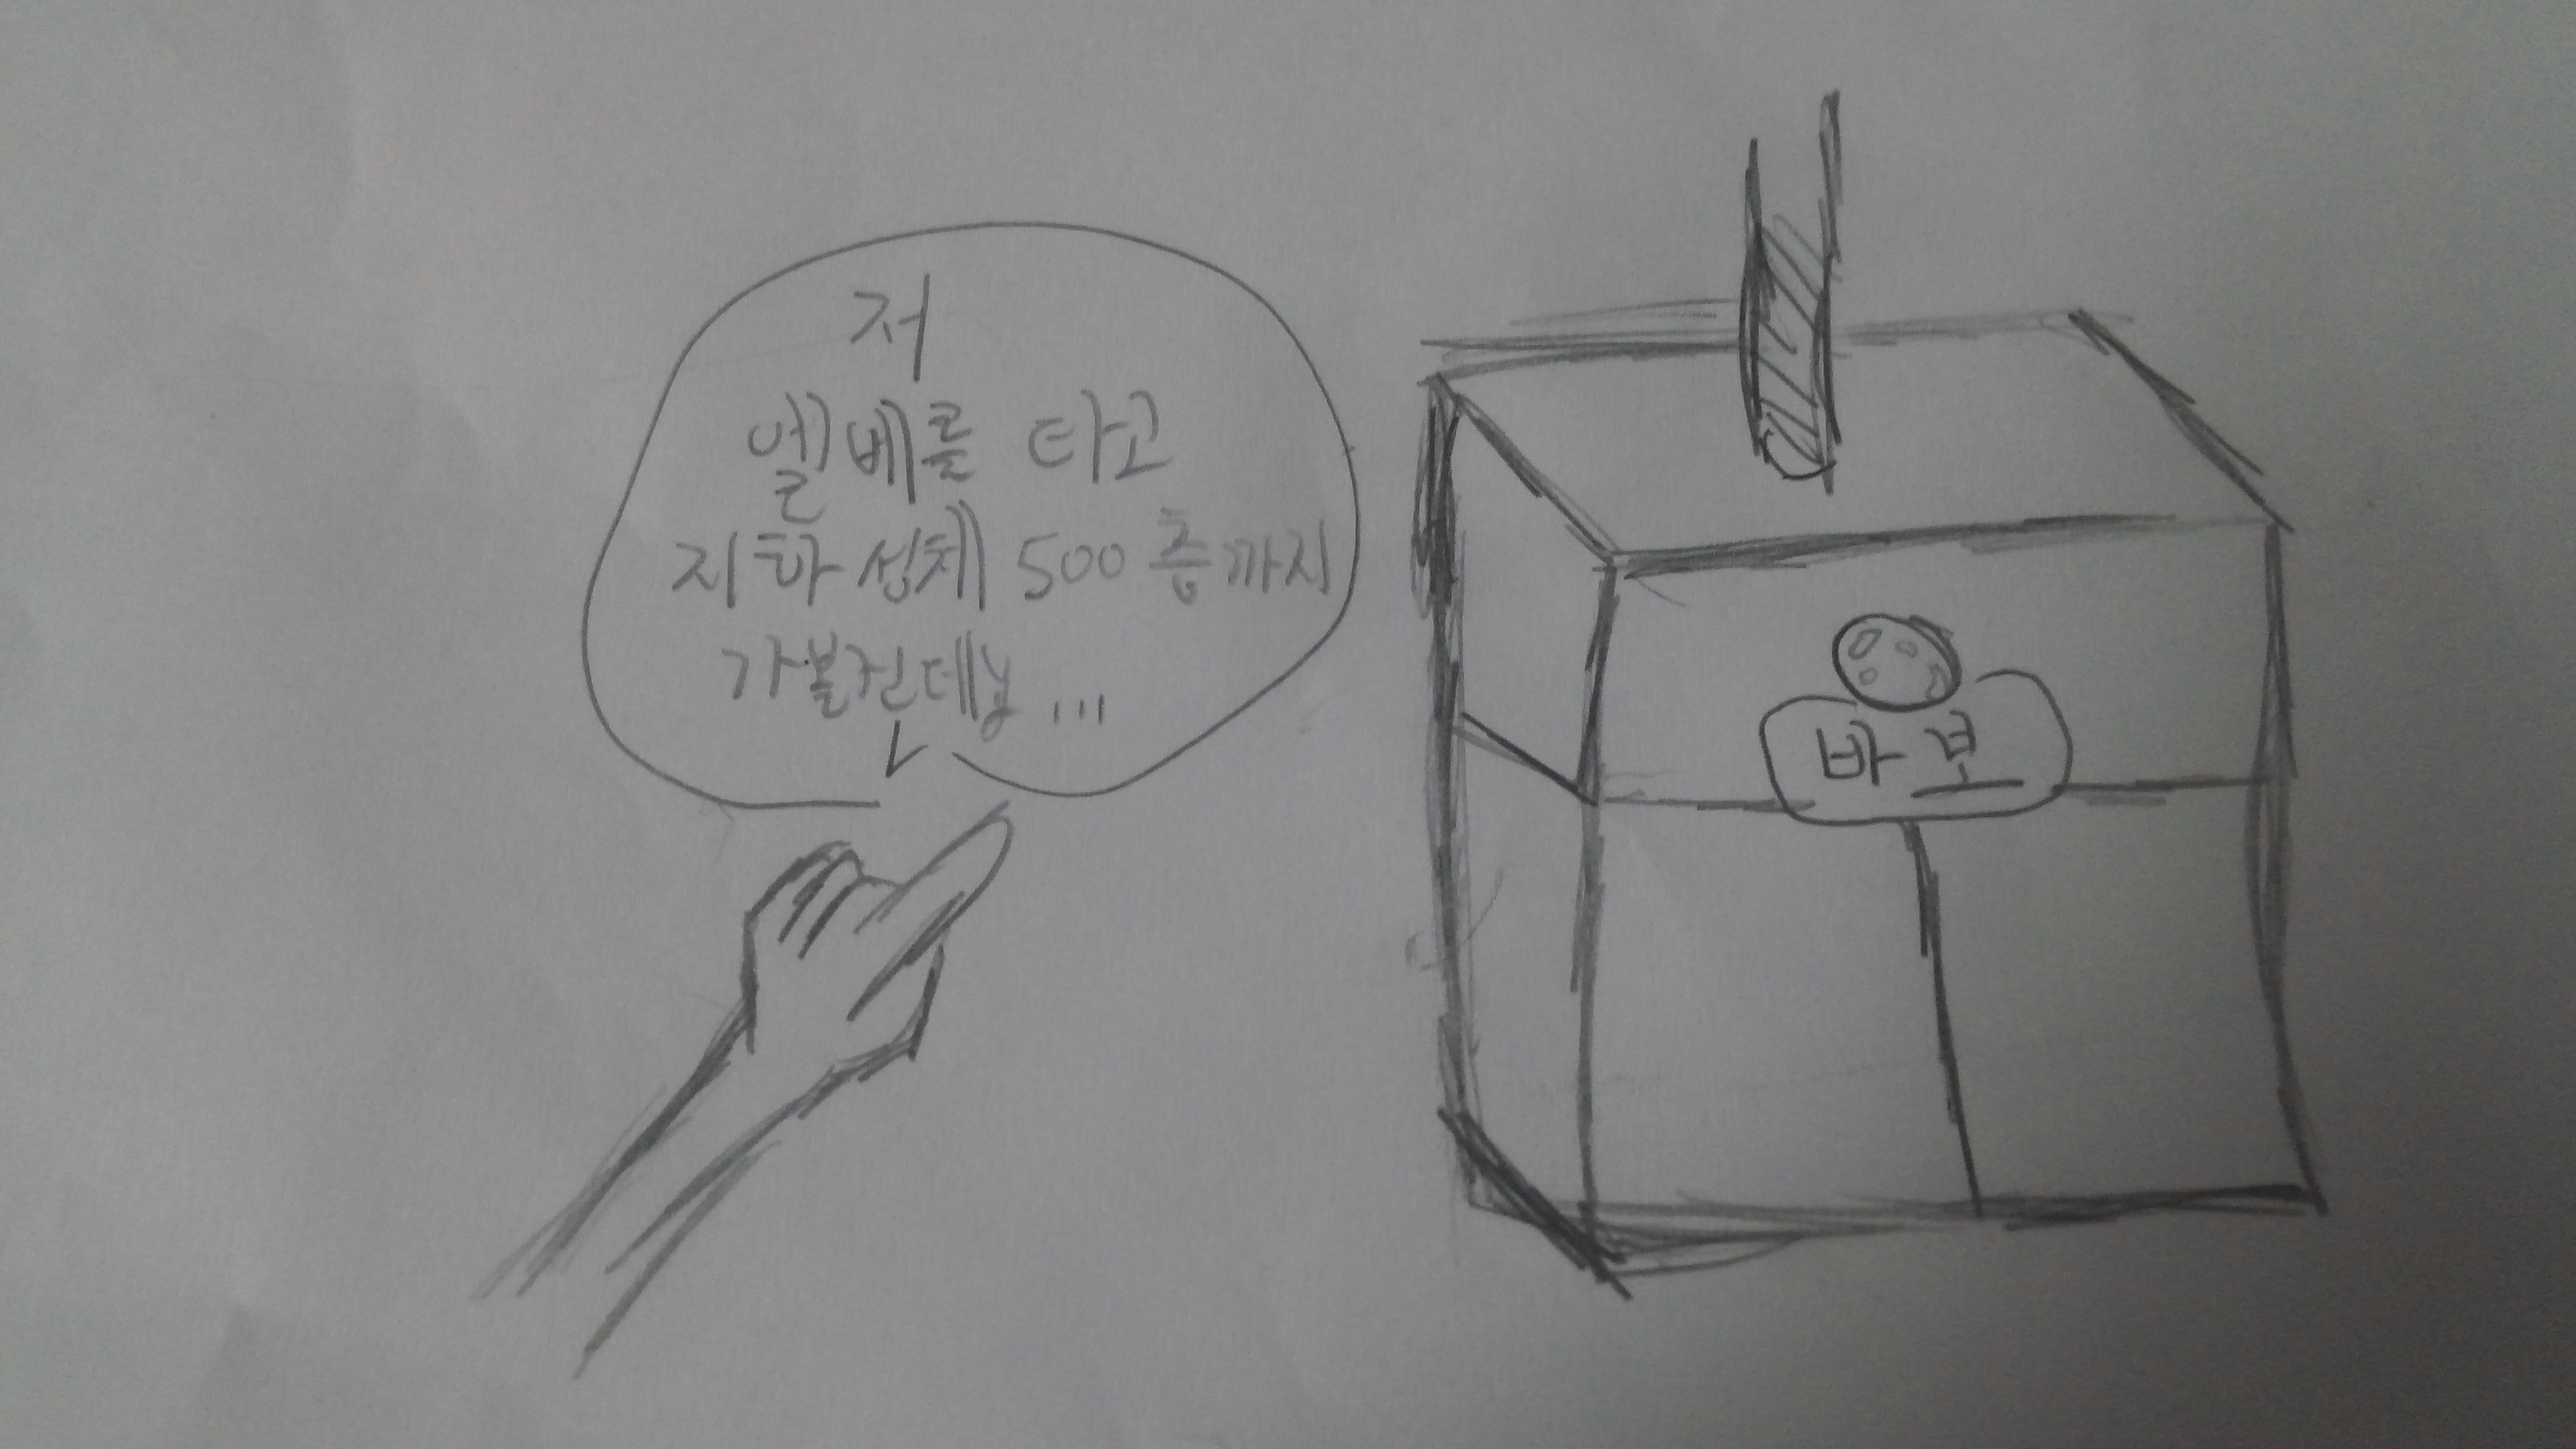 저
엘베를 타고
지하성체 500층까지
가볼껀데님...
바보